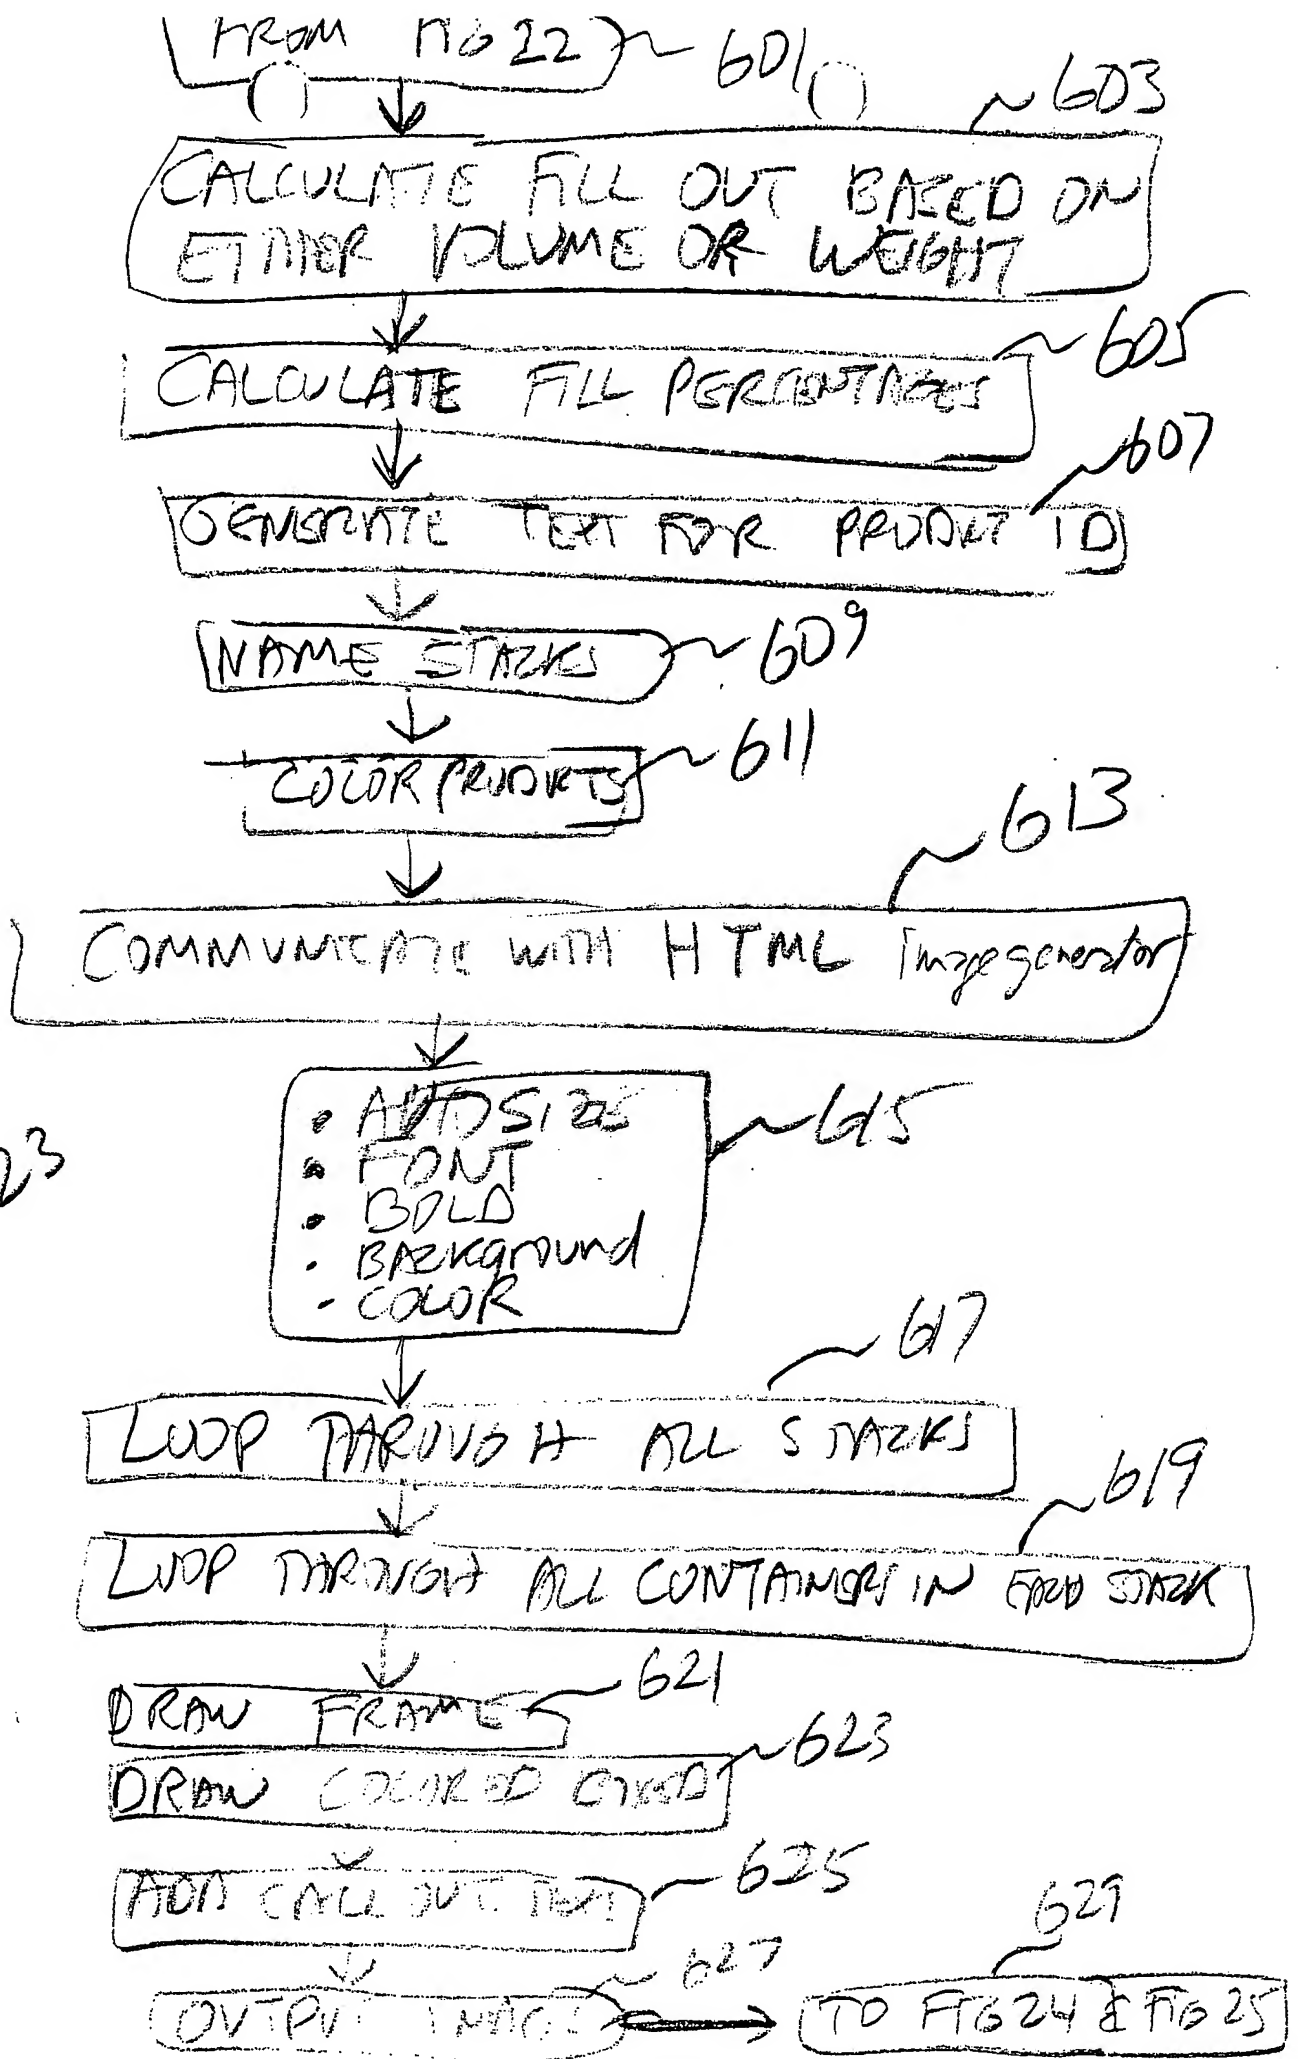 FROM FIG 22 601
603
CALCULATE FILL OUT BASED ON
EITHER VOLUME OR WEIGHT
605
CALCULATE FILL PERCENTAGES
607
GENERATE TEXT FOR PRODUCT ID
NAME STACKS 609
COLOR PRODUCTS 611
613
COMMUNICATE WITH HTML Image generator
• SIZES 615
• FONT
23
• BOLD
• BACKground
• COLOR
617
LOOP THROUGH ALL STACKS
619
LOOP THROUGH ALL CONTAINERS IN EACH STACK
DRAW FRAME 621
DRAW COLORED 623
ADD CALL OUT TEXT 625
629
OUTPUT IMAGE 627 TO FIG 24 & FIG 25